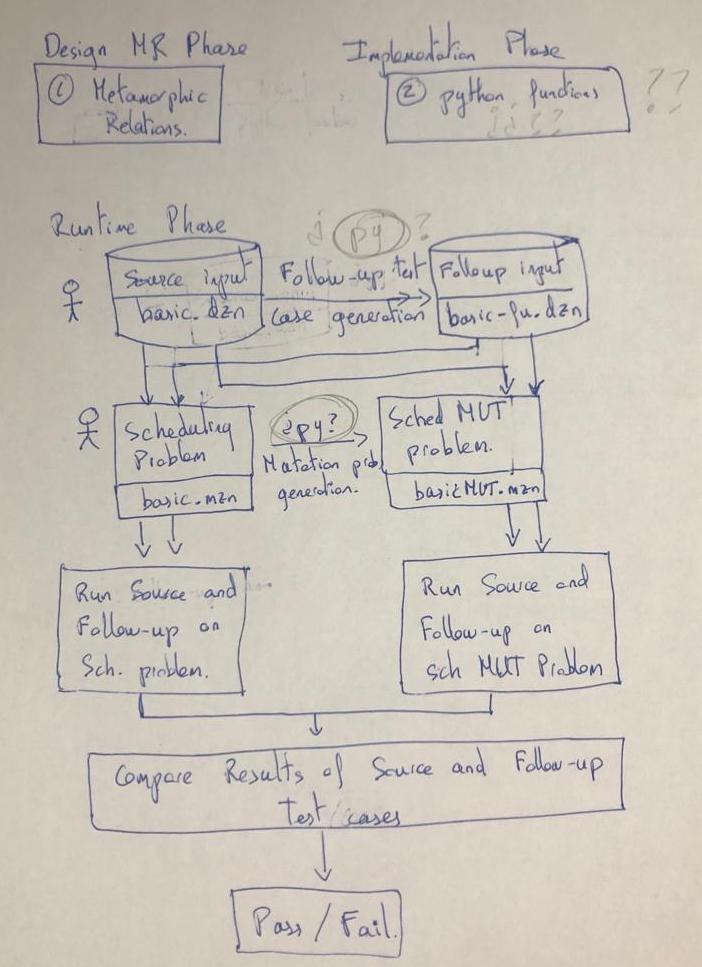 Design MR Phase
Implementation Phase
① Metamorphic
Relations.
② python functions
¿¿??
??
Runtime Phase
¿ py ?
Source input
basic.dzn
Follow-up test
case generation
Follup input
basic-fu.dzn
Scheduling
Problem
basic.mzn
¿py?
Mutation prob
generation.
Sched MUT
problem.
basicMUT.mzn
Run Source and
Follow-up on
Sch. problem.
Run Source and
Follow-up on
sch MUT Problem
Compare Results of Source and Follow-up
Test/cases
Pass / Fail.